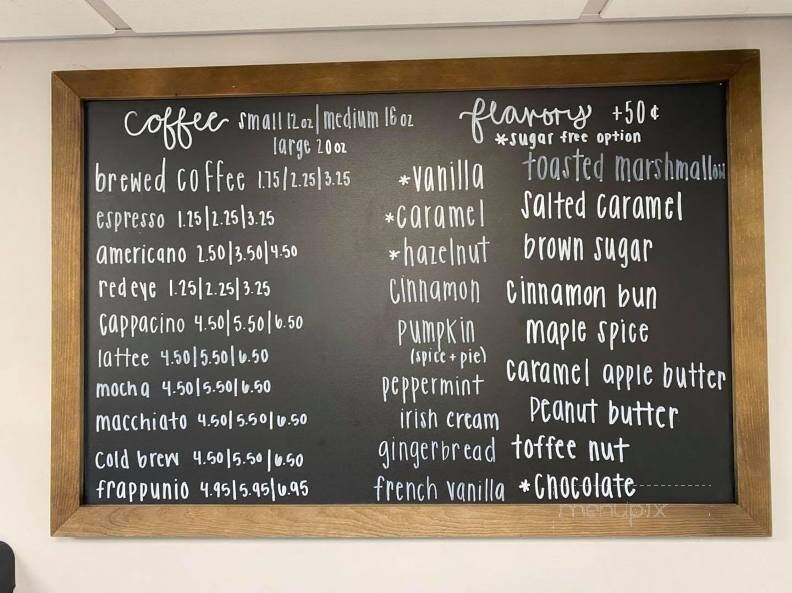 coffee small 12 oz | medium 16 oz
large 20 oz
brewed coffee 1.75 | 2.25 | 3.25
espresso 1.25 | 2.25 | 3.25
americano 2.50 | 3.50 | 4.50
red eye 1.25 | 2.25 | 3.25
cappacino 4.50 | 5.50 | 6.50
lattee 4.50 | 5.50 | 6.50
mocha 4.50 | 5.50 | 6.50
macchiato 4.50 | 5.50 | 6.50
cold brew 4.50 | 5.50 | 6.50
frappunio 4.95 | 5.95 | 6.95
flavors +50¢
*sugar free option
*vanilla
*caramel
*hazelnut
cinnamon
pumpkin
(spice + pie)
peppermint
irish cream
gingerbread
french vanilla
toasted marshmallow
salted caramel
brown sugar
cinnamon bun
maple spice
caramel apple butter
peanut butter
toffee nut
*chocolate
menupix